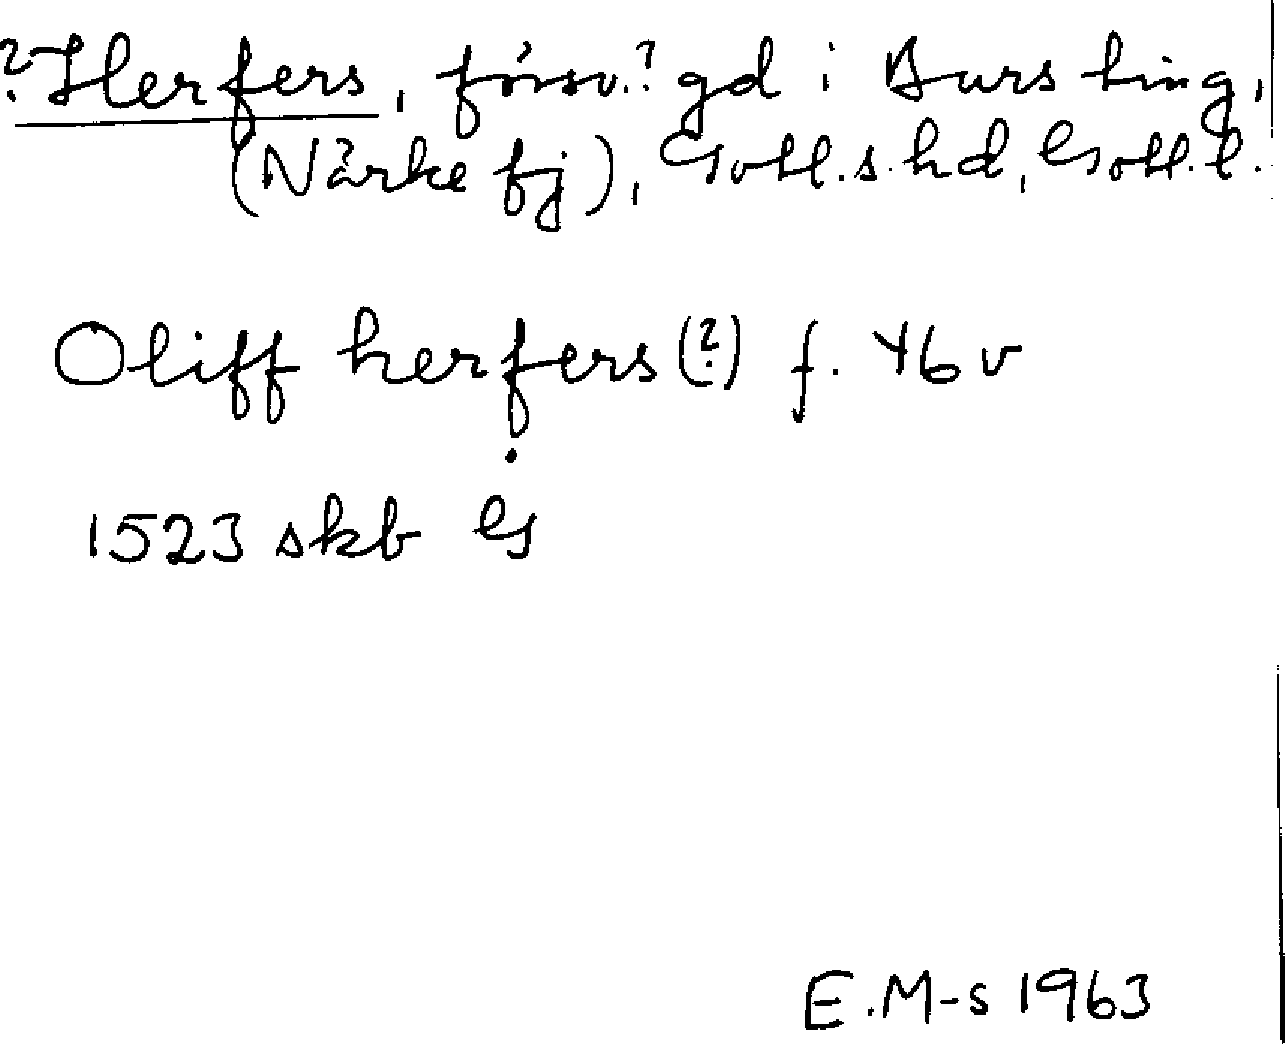 ?Herfers, försv.? gd i Burs ting,
(Närke fj), Gotl.s. hd, Gotl. l.
Oliff herfers (?) f. 46 v
1523 skb G
E.M-s 1963